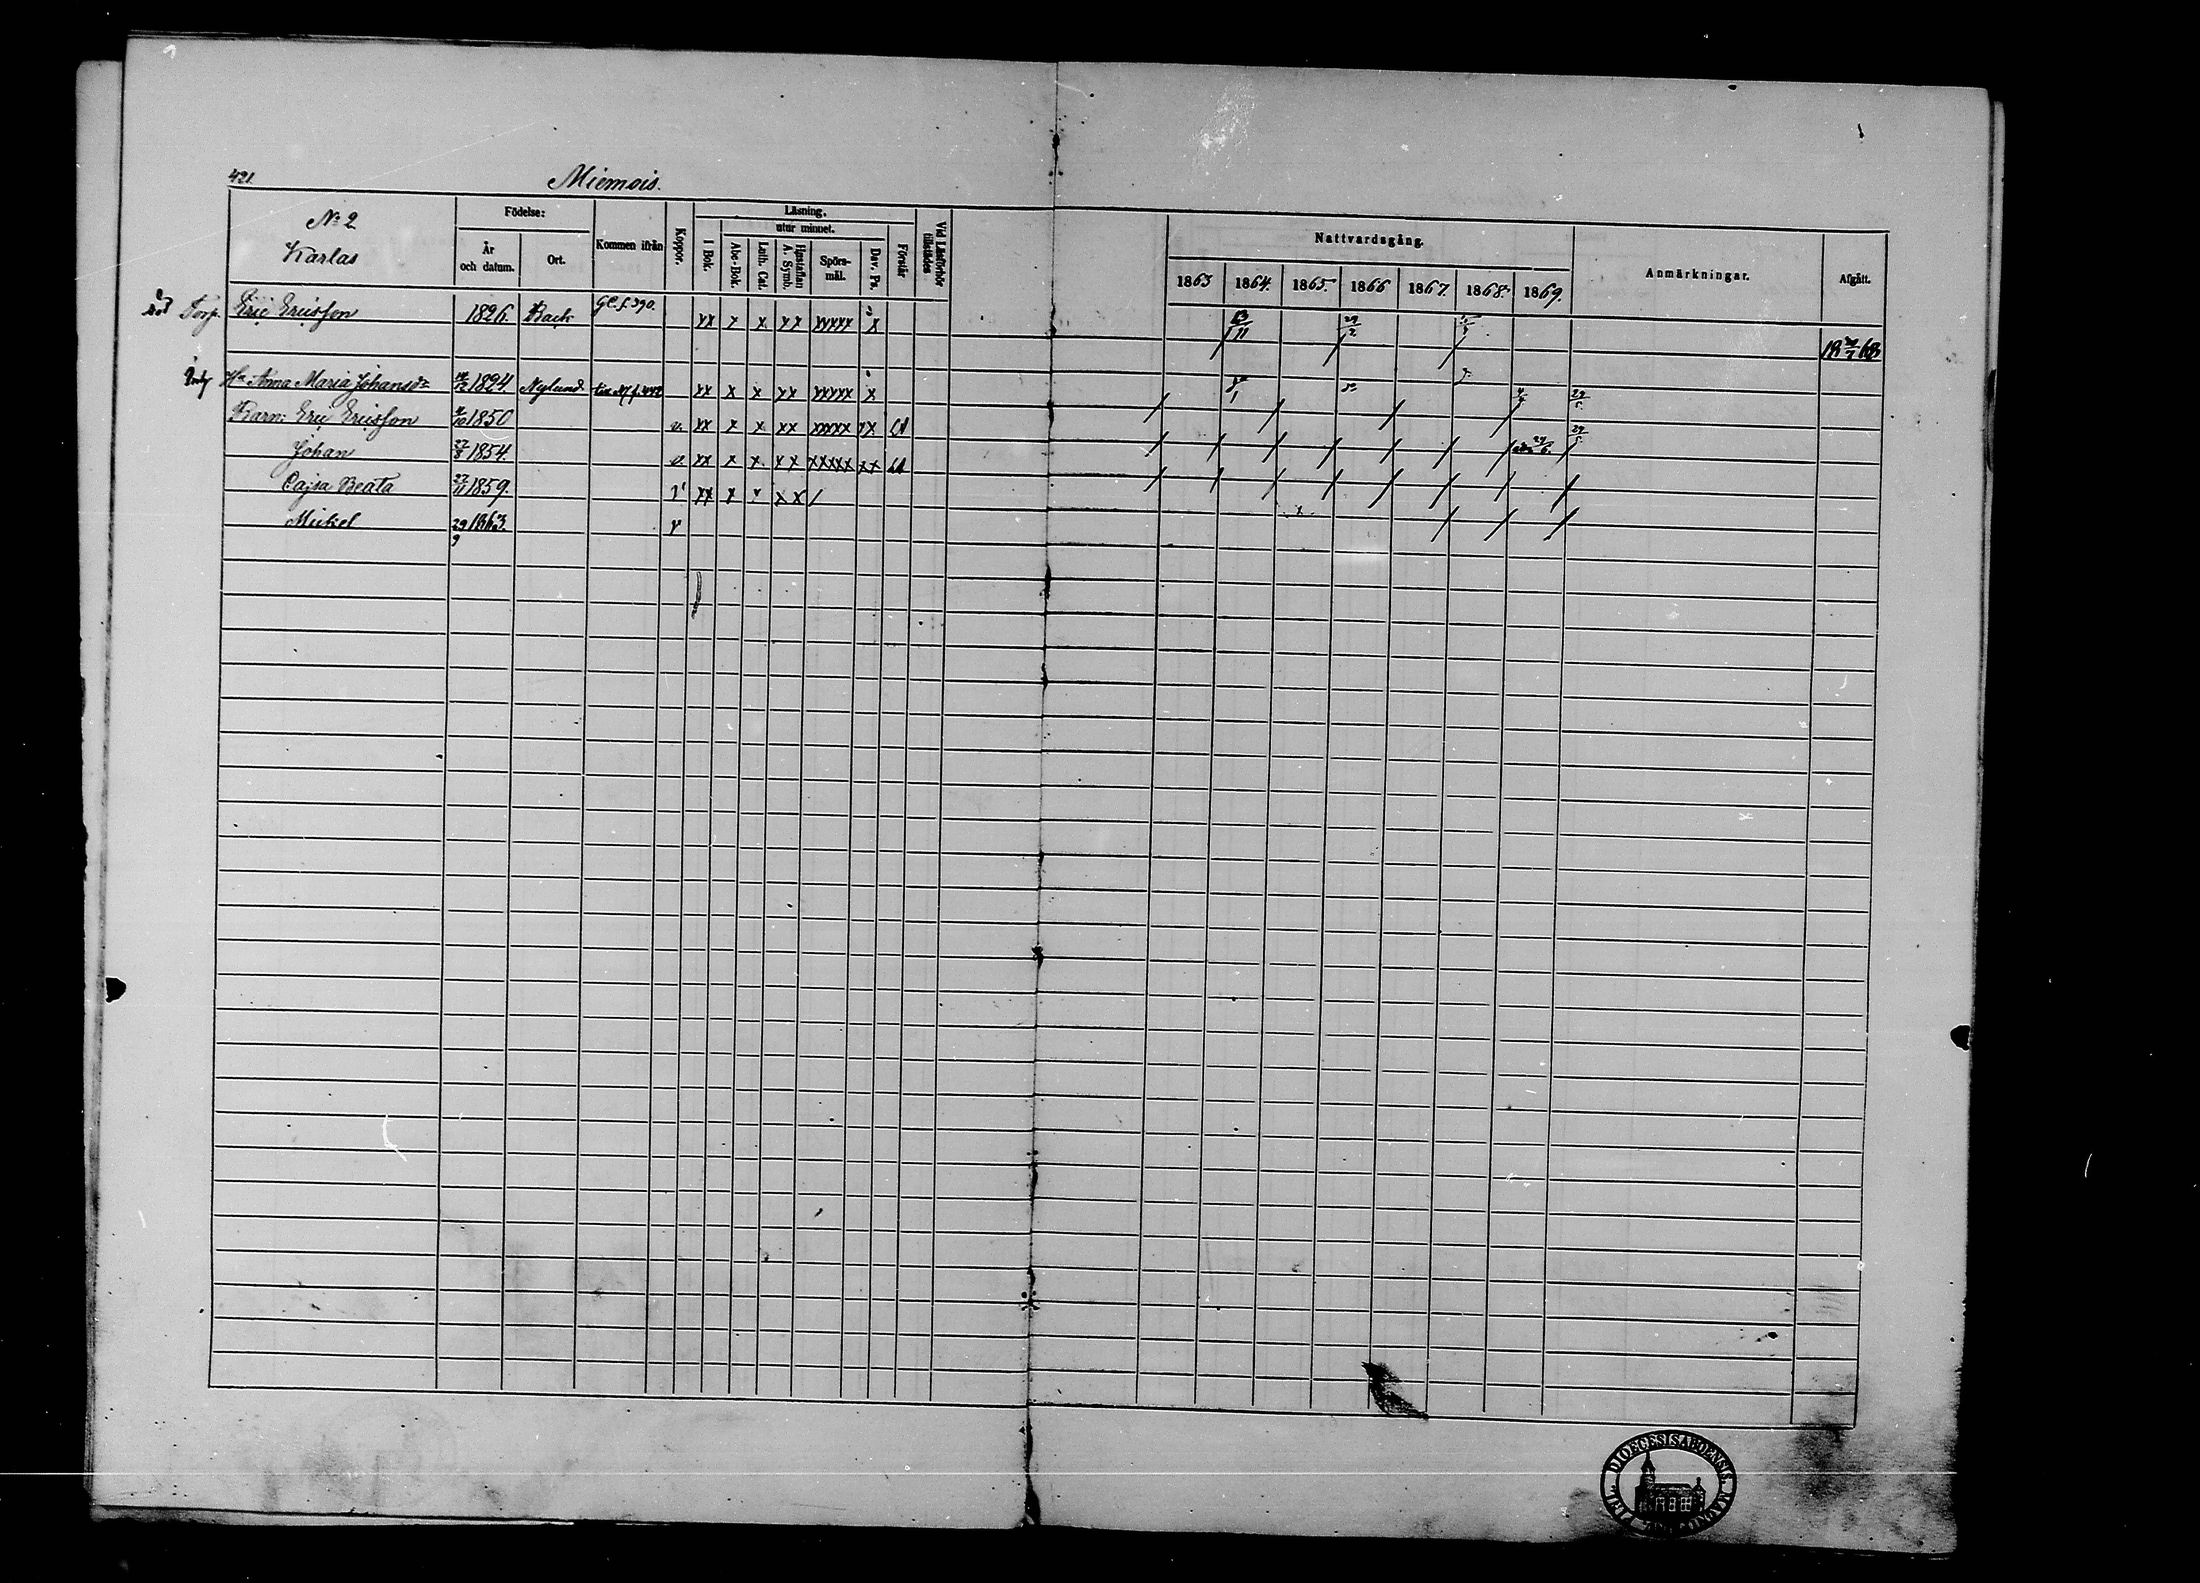 421.
Miemois.
No 2
Karlas
Födelse:
År och datum.
Ort.
Kommen ifrån
Koppor.
Läsning.
utur minnet.
I Bok.
Abc-Bok.
Luth. Cat.
Hustaflan A. Symb.
Spörs-mål.
Dav. Ps.
Förstår
Vid Läsförhör tillstädes
Nattvardsgång.
1863 1864. 1865. 1866 1867. 1868. 1869.
Anmärkningar.
Afgått.
Torp. Eric Ericsson 1826. Back xx x x xx xxxxx x
Hu Anna Maria Johansdr 1824 Nylund xx x x xx xxxxx x
Barn: Eric Ericsson 1850 v. xx x x xx xxxxx xx
Johan 1854. v. xx x x. xx xxxxx xx
Cajsa Beata 27/11 1859. v xx x xx /
Mickel 29/9 1863. v
DIOECESIS ABOENSIS